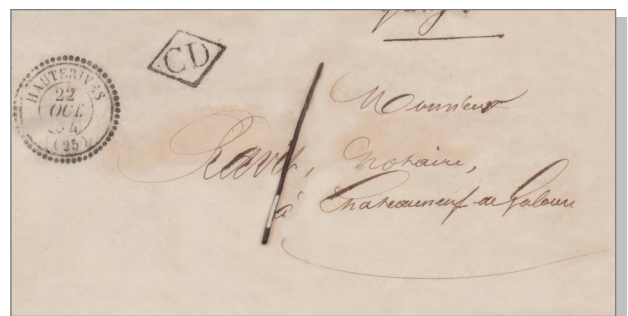 CD
HAUTERIVES
22
OCT.
54
(25)
Monsieur
Ravit, Notaire,
à Chateauneuf de Galaure